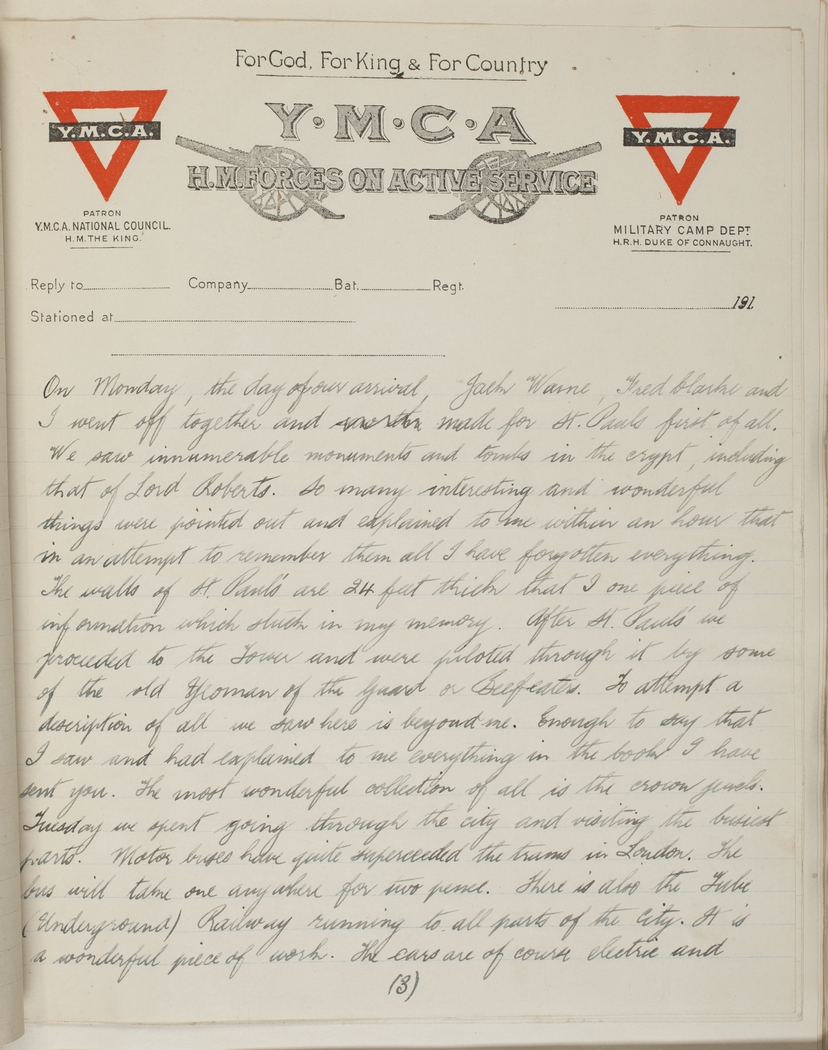 For God, For King & For Country
Y·M·C·A
H.M. FORCES ON ACTIVE SERVICE
Y.M.C.A.
PATRON
Y.M.C.A. NATIONAL COUNCIL.
H.M. THE KING.
Y.M.C.A.
PATRON
MILITARY CAMP DEPT
H.R.H. DUKE OF CONNAUGHT.
Reply to Company Bat. Regt.
191
Stationed at
On Monday, the day of our arrival, Jack Warne, Fred Clarke and
I went off together and made for St. Pauls first of all.
We saw innumerable monuments and tombs in the crypt, including
that of Lord Roberts. So many interesting and wonderful
things were pointed out and explained to me within an hour that
in an attempt to remember them all I have forgotten everything.
The walls of St. Paul's are 24 feet thick that I one piece of
information which stuck in my memory. After St. Paul's we
proceeded to the Tower and were piloted through it by some
of the old Yeoman of the Guard or Beefeaters. To attempt a
description of all we saw here is beyond me. Enough to say that
I saw and had explained to me everything in the book I have
sent you. The most wonderful collection of all is the crown jewels.
Tuesday we spent going through the city and visiting the busiest
parts. Motor buses have quite superceeded the trams in London. The
bus will take one anywhere for two pence. There is also the Tube
(Underground) Railway running to all parts of the city. It is
a wonderful piece of work. The cars are of course electric and
(3)